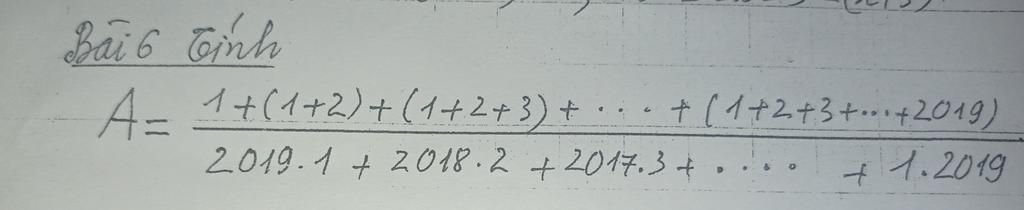 Bài 6 Tính
A = 1+(1+2)+(1+2+3)+....+(1+2+3+...+2019)
2019.1 + 2018.2 + 2017.3 + .... + 1.2019